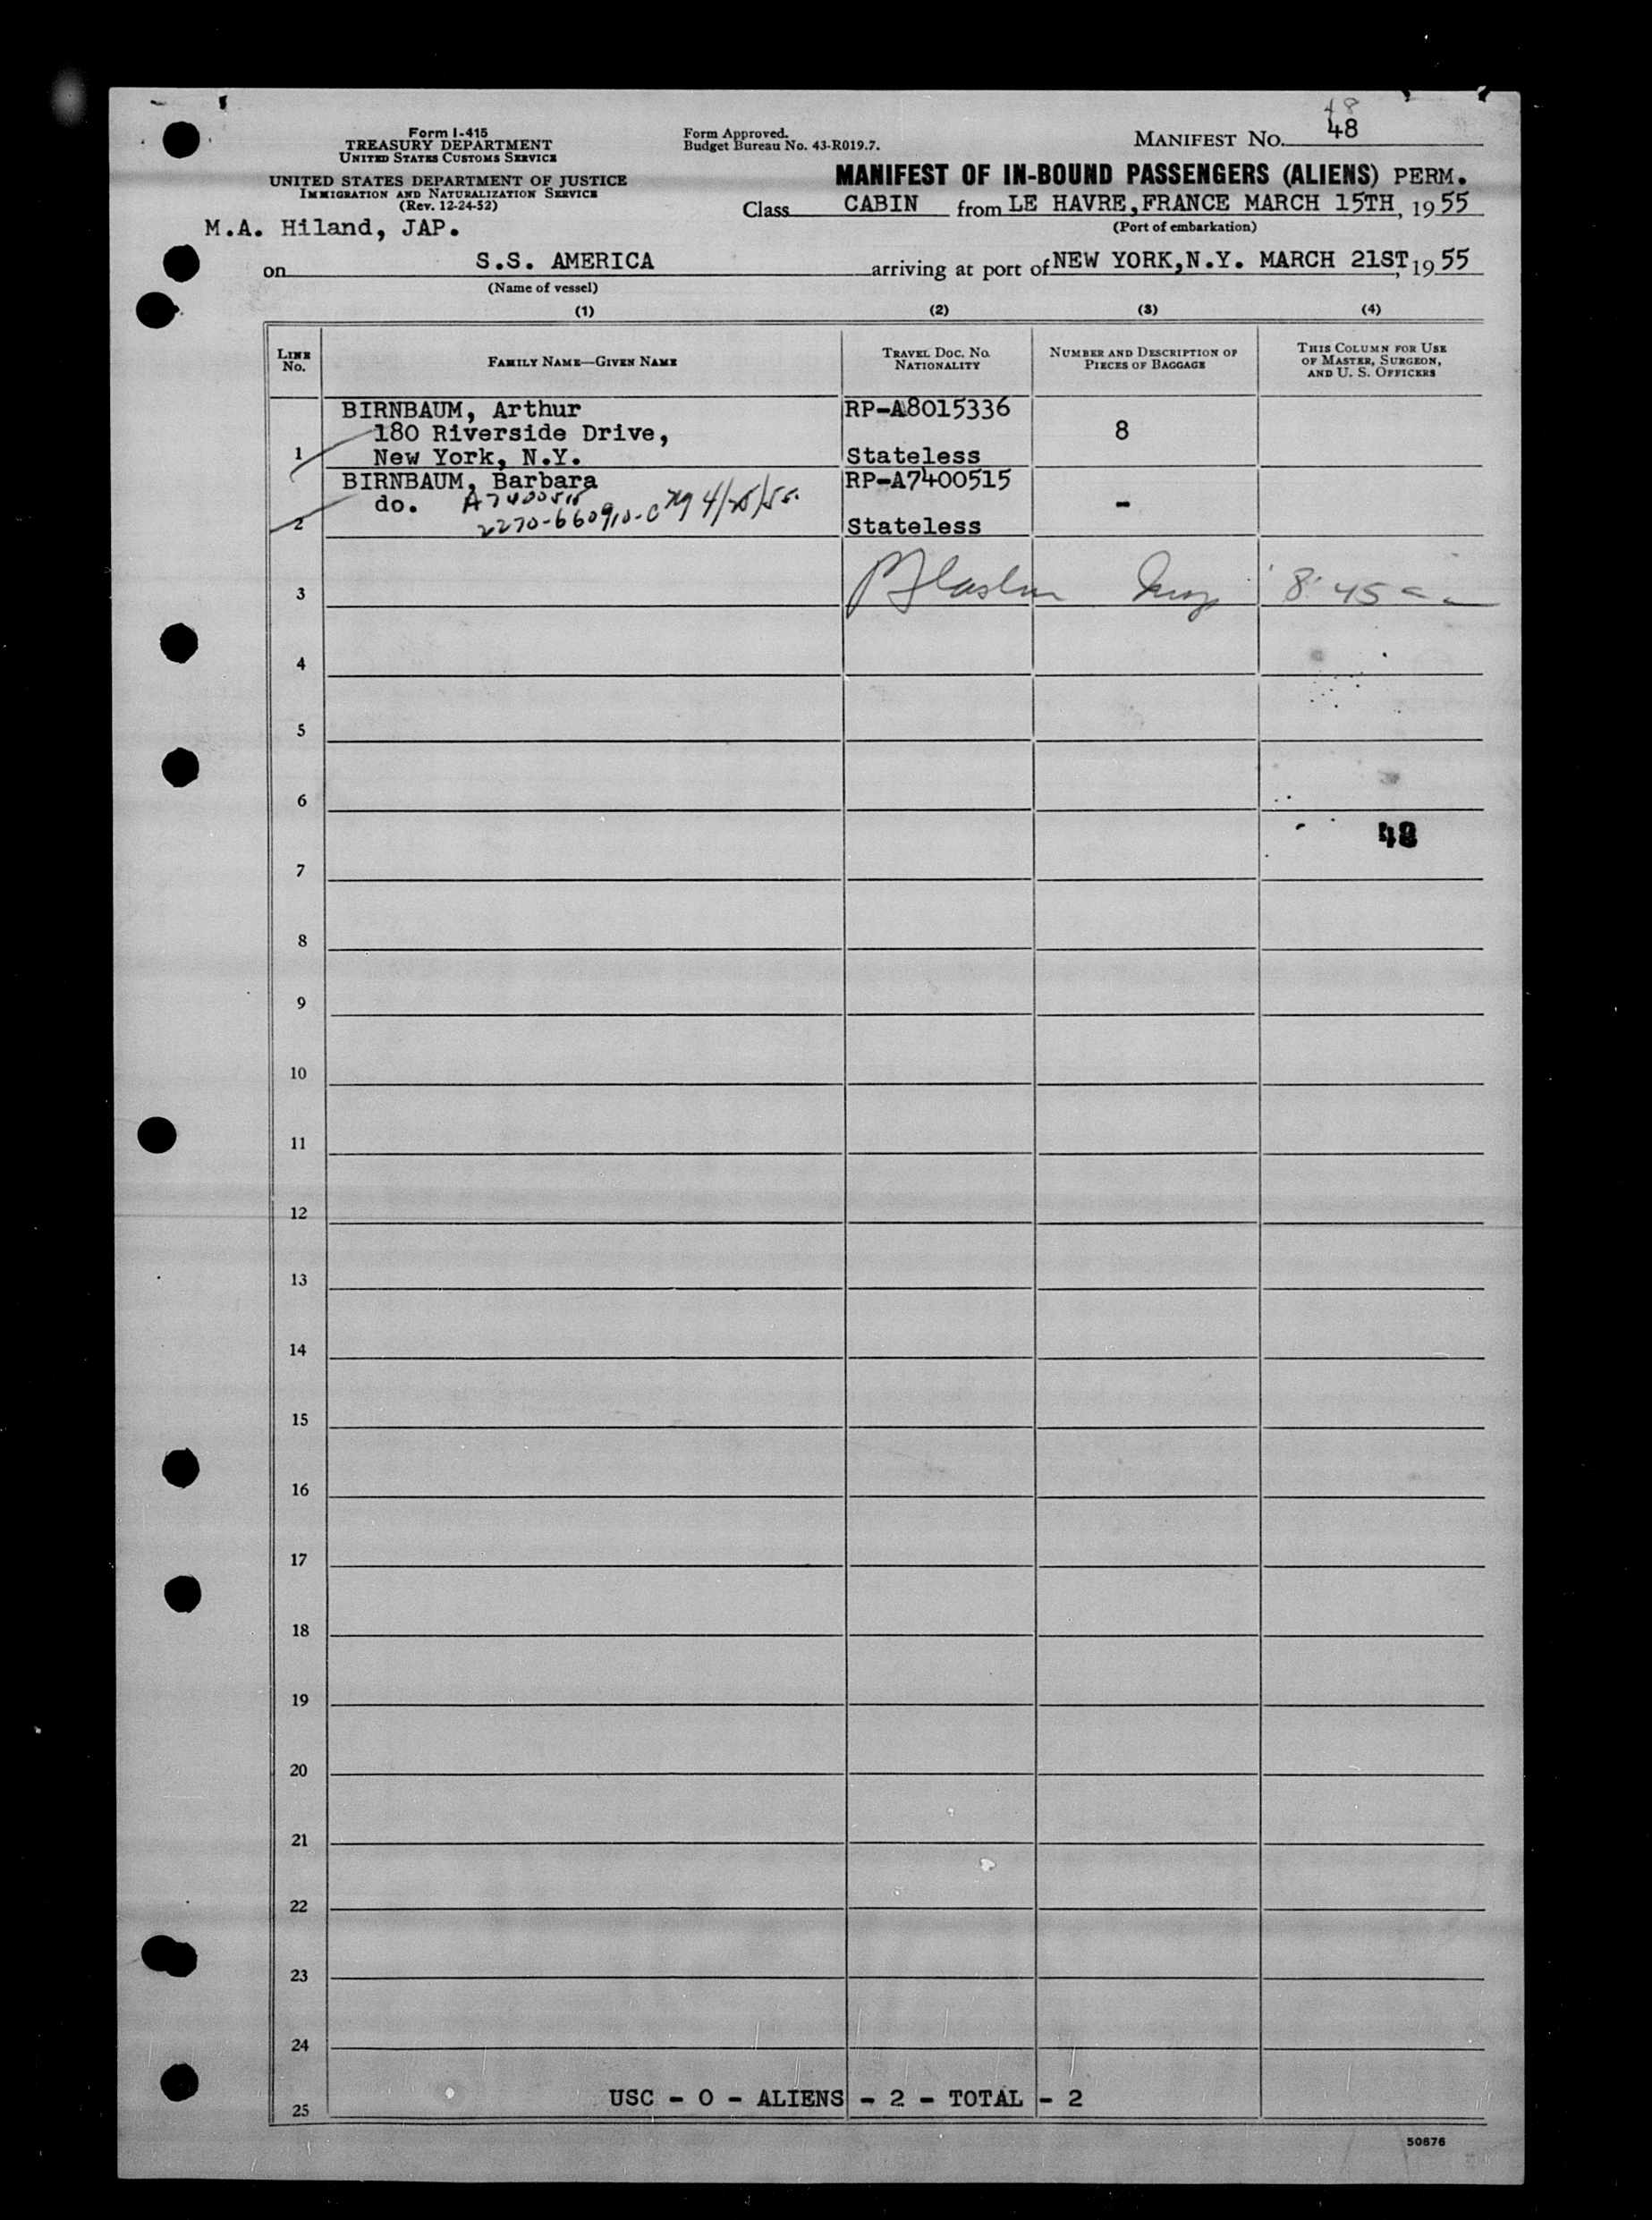 48
Form I-415
TREASURY DEPARTMENT
UNITED STATES CUSTOMS SERVICE
UNITED STATES DEPARTMENT OF JUSTICE
IMMIGRATION AND NATURALIZATION SERVICE
(Rev. 12-24-52)
Form Approved.
Budget Bureau No. 43-R019.7.
MANIFEST No. 48
MANIFEST OF IN-BOUND PASSENGERS (ALIENS) PERM.
Class CABIN from LE HAVRE, FRANCE MARCH 15TH, 1955
(Port of embarkation)
M.A. Hiland, JAP.
on S.S. AMERICA arriving at port of NEW YORK, N.Y. MARCH 21ST, 1955
(Name of vessel)
(1) (2) (3) (4)
LINE No. FAMILY NAME—GIVEN NAME TRAVEL DOC. NO. NATIONALITY NUMBER AND DESCRIPTION OF PIECES OF BAGGAGE THIS COLUMN FOR USE OF MASTER, SURGEON, AND U. S. OFFICERS
BIRNBAUM, Arthur RP-A8015336
180 Riverside Drive, 8
1 New York, N.Y. Stateless
BIRNBAUM, Barbara RP-A7400515
do. A7400515 -
2 2270-660910-C 4/25/55. Stateless
3 8:45
4
5
6
48
7
8
9
10
11
12
13
14
15
16
17
18
19
20
21
22
23
24
USC - 0 - ALIENS - 2 - TOTAL - 2
25
50676